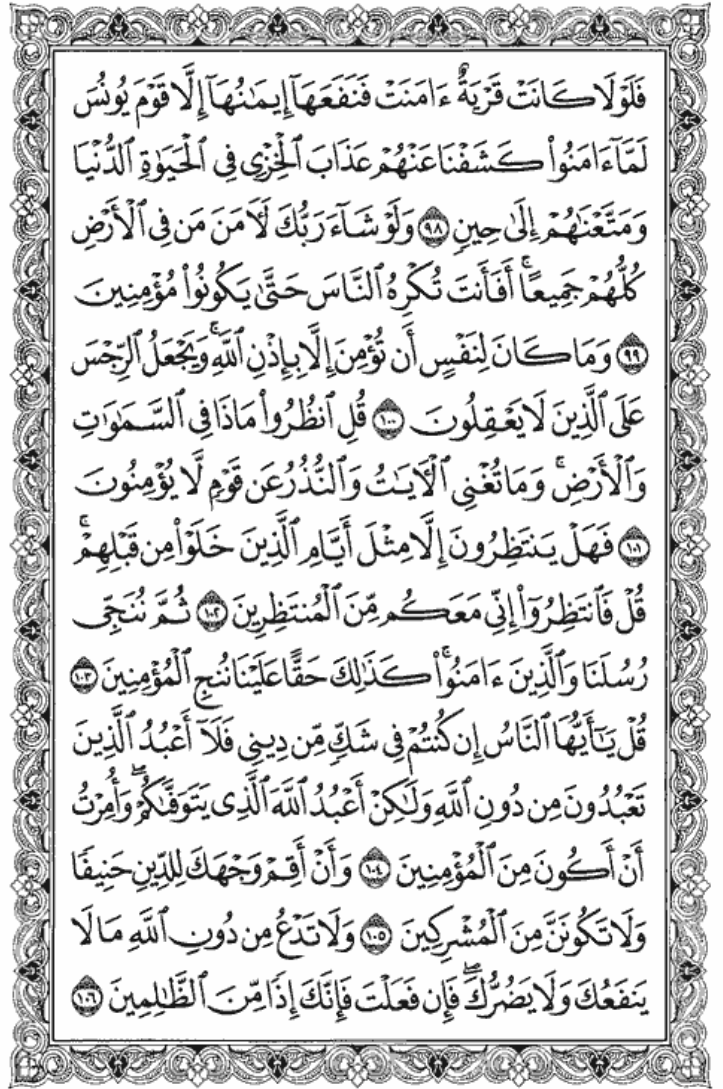 فَلَوْلَا كَانَتْ قَرْيَةٌ ءَامَنَتْ فَنَفَعَهَآ إِيمَـٰنُهَآ إِلَّا قَوْمَ يُونُسَ
لَمَّآ ءَامَنُوا۟ كَشَفْنَا عَنْهُمْ عَذَابَ ٱلْخِزْىِ فِى ٱلْحَيَوٰةِ ٱلدُّنْيَا
وَمَتَّعْنَـٰهُمْ إِلَىٰ حِينٍ ٩٨ وَلَوْ شَآءَ رَبُّكَ لَـَٔامَنَ مَن فِى ٱلْأَرْضِ
كُلُّهُمْ جَمِيعًا ۚ أَفَأَنتَ تُكْرِهُ ٱلنَّاسَ حَتَّىٰ يَكُونُوا۟ مُؤْمِنِينَ
٩٩ وَمَا كَانَ لِنَفْسٍ أَن تُؤْمِنَ إِلَّا بِإِذْنِ ٱللَّهِ ۚ وَيَجْعَلُ ٱلرِّجْسَ
عَلَى ٱلَّذِينَ لَا يَعْقِلُونَ ١٠٠ قُلِ ٱنظُرُوا۟ مَاذَا فِى ٱلسَّمَـٰوَٰتِ
وَٱلْأَرْضِ ۚ وَمَا تُغْنِى ٱلْـَٔايَـٰتُ وَٱلنُّذُرُ عَن قَوْمٍ لَّا يُؤْمِنُونَ
١٠١ فَهَلْ يَنتَظِرُونَ إِلَّا مِثْلَ أَيَّامِ ٱلَّذِينَ خَلَوْا۟ مِن قَبْلِهِمْ ۚ
قُلْ فَٱنتَظِرُوٓا۟ إِنِّى مَعَكُم مِّنَ ٱلْمُنتَظِرِينَ ١٠٢ ثُمَّ نُنَجِّى
رُسُلَنَا وَٱلَّذِينَ ءَامَنُوا۟ ۚ كَذَٰلِكَ حَقًّا عَلَيْنَا نُنجِ ٱلْمُؤْمِنِينَ ١٠٣
قُلْ يَـٰٓأَيُّهَا ٱلنَّاسُ إِن كُنتُمْ فِى شَكٍّ مِّن دِينِى فَلَآ أَعْبُدُ ٱلَّذِينَ
تَعْبُدُونَ مِن دُونِ ٱللَّهِ وَلَـٰكِنْ أَعْبُدُ ٱللَّهَ ٱلَّذِى يَتَوَفَّىٰكُمْ ۖ وَأُمِرْتُ
أَنْ أَكُونَ مِنَ ٱلْمُؤْمِنِينَ ١٠٤ وَأَنْ أَقِمْ وَجْهَكَ لِلدِّينِ حَنِيفًا
وَلَا تَكُونَنَّ مِنَ ٱلْمُشْرِكِينَ ١٠٥ وَلَا تَدْعُ مِن دُونِ ٱللَّهِ مَا لَا
يَنفَعُكَ وَلَا يَضُرُّكَ ۖ فَإِن فَعَلْتَ فَإِنَّكَ إِذًا مِّنَ ٱلظَّـٰلِمِينَ ١٠٦